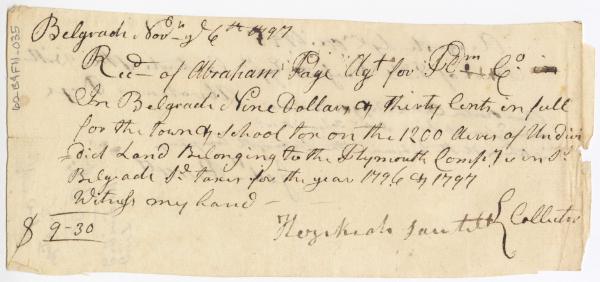 Belgrade Novr ye 6th 1797
Recd of Abraham Page Agt for Plm Co in
In Belgrade Nine Dollars & thirty Cents in full
for the town & school tax on the 1200 Acres of Undivi
=ded Land Belonging to the Plymouth Compy is in Sd
Belgrade Sd taxes for the year 1796 & 1797
Witness my hand
$ 9-30
Collector